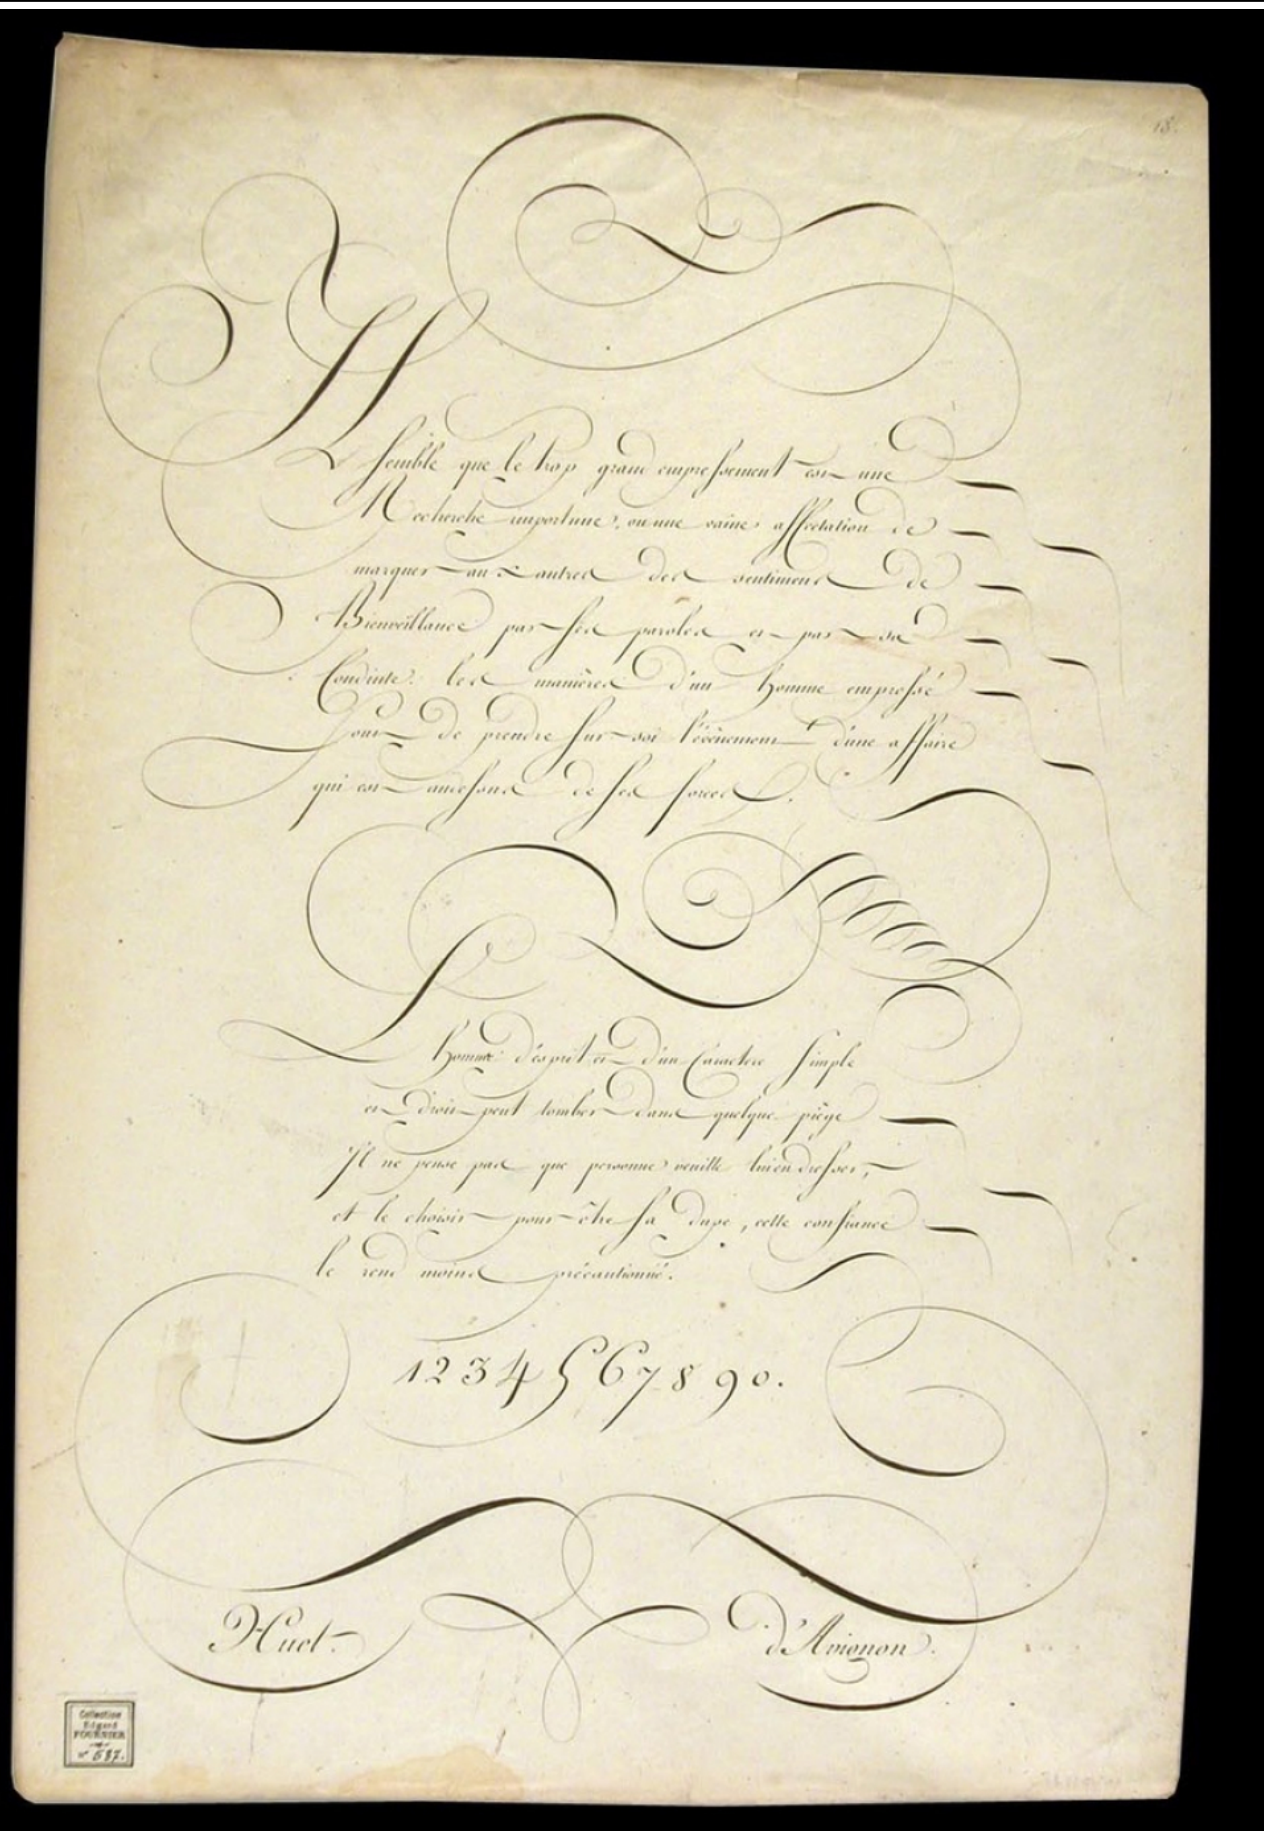 18.
Il semble que le trop grand empressement est une
Recherche importune, ou une vaine affectation de
marquer aux autres des sentimens de
Bienveillance par ses paroles et par sa
Conduite. les manières d'un homme empressé
Sont de prendre sur soi l'évènement d'une affaire
qui est audessous de ses forces.
L'homme d'esprit et d'un Caractere simple
et droit peut tomber dans quelque piège
Il ne pense pas que personne veuille lui en dresser,
et le choisir pour être sa dupe, cette confiance
le rend moins précautionné.
1 2 3 4 5 6 7 8 9 0.
Huet. d'Avignon.
Collection
Edgard
FOURNIER
n° 587.